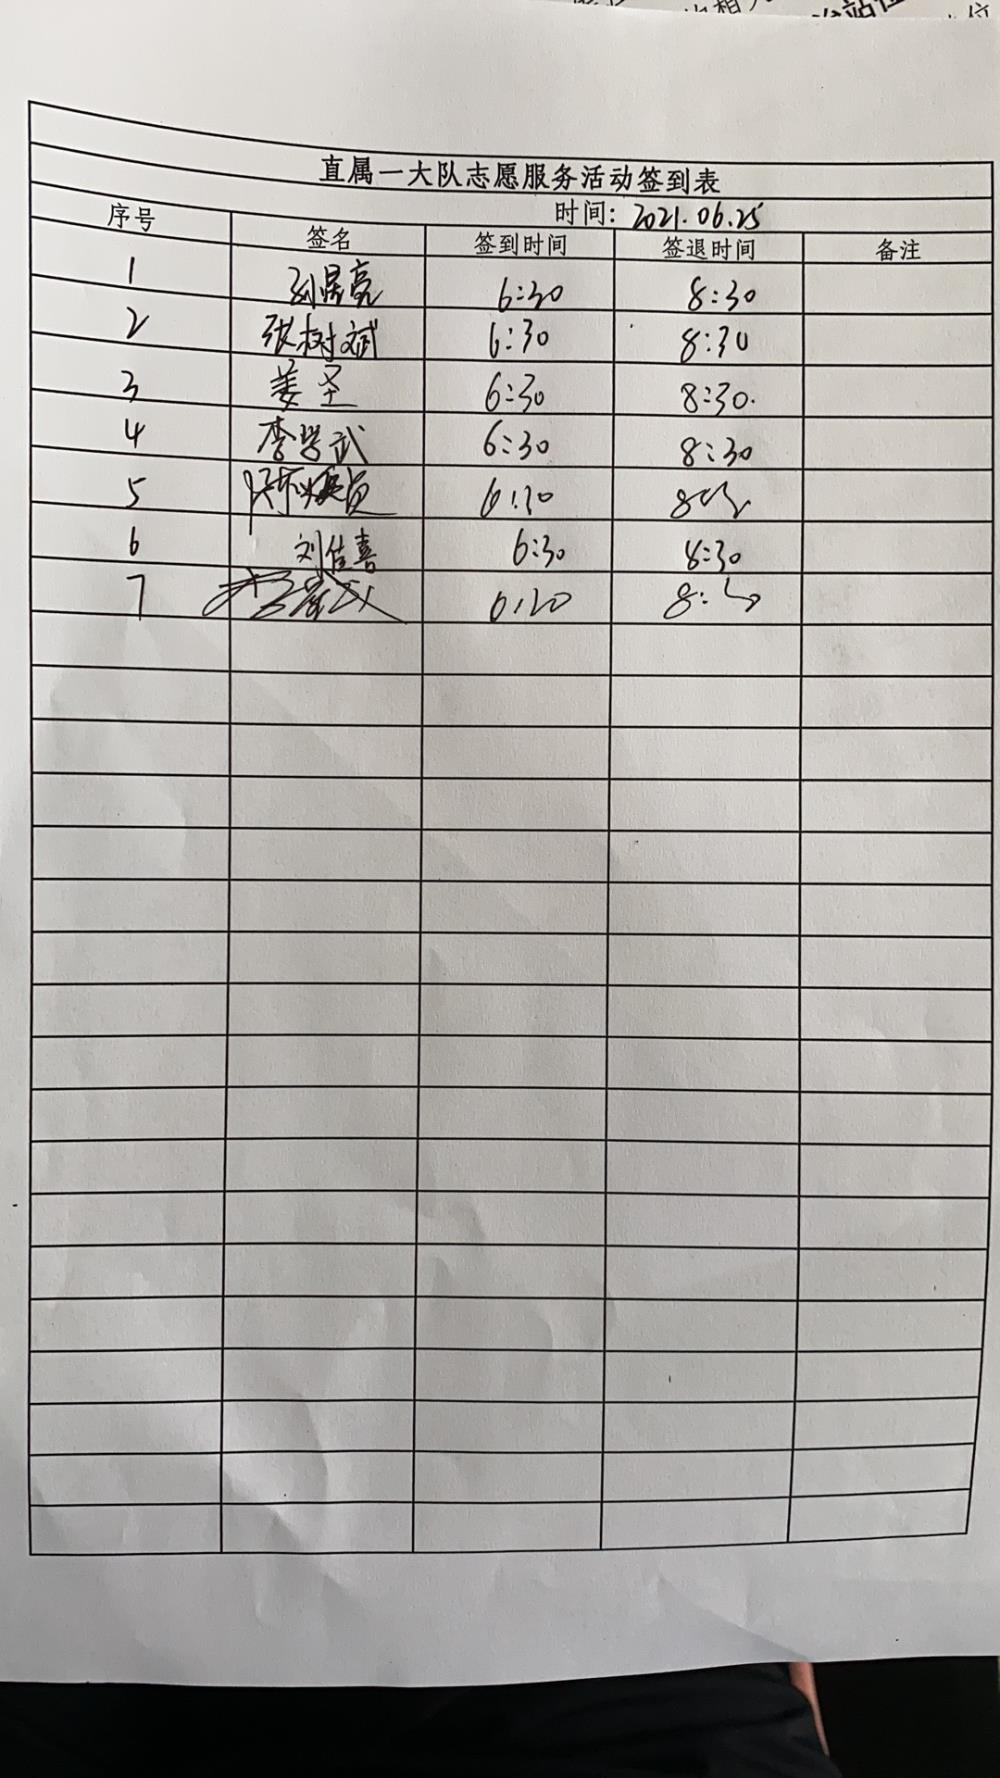 直属一大队志愿服务活动签到表
时间: 2021.06.25
序号 签名 签到时间 签退时间 备注
1 6:30 8:30
2 张树斌 6:30 8:30
3 姜圣 6:30 8:30.
4 李学武 6:30 8:30
5
6 刘佳喜 6:30 8:30
7